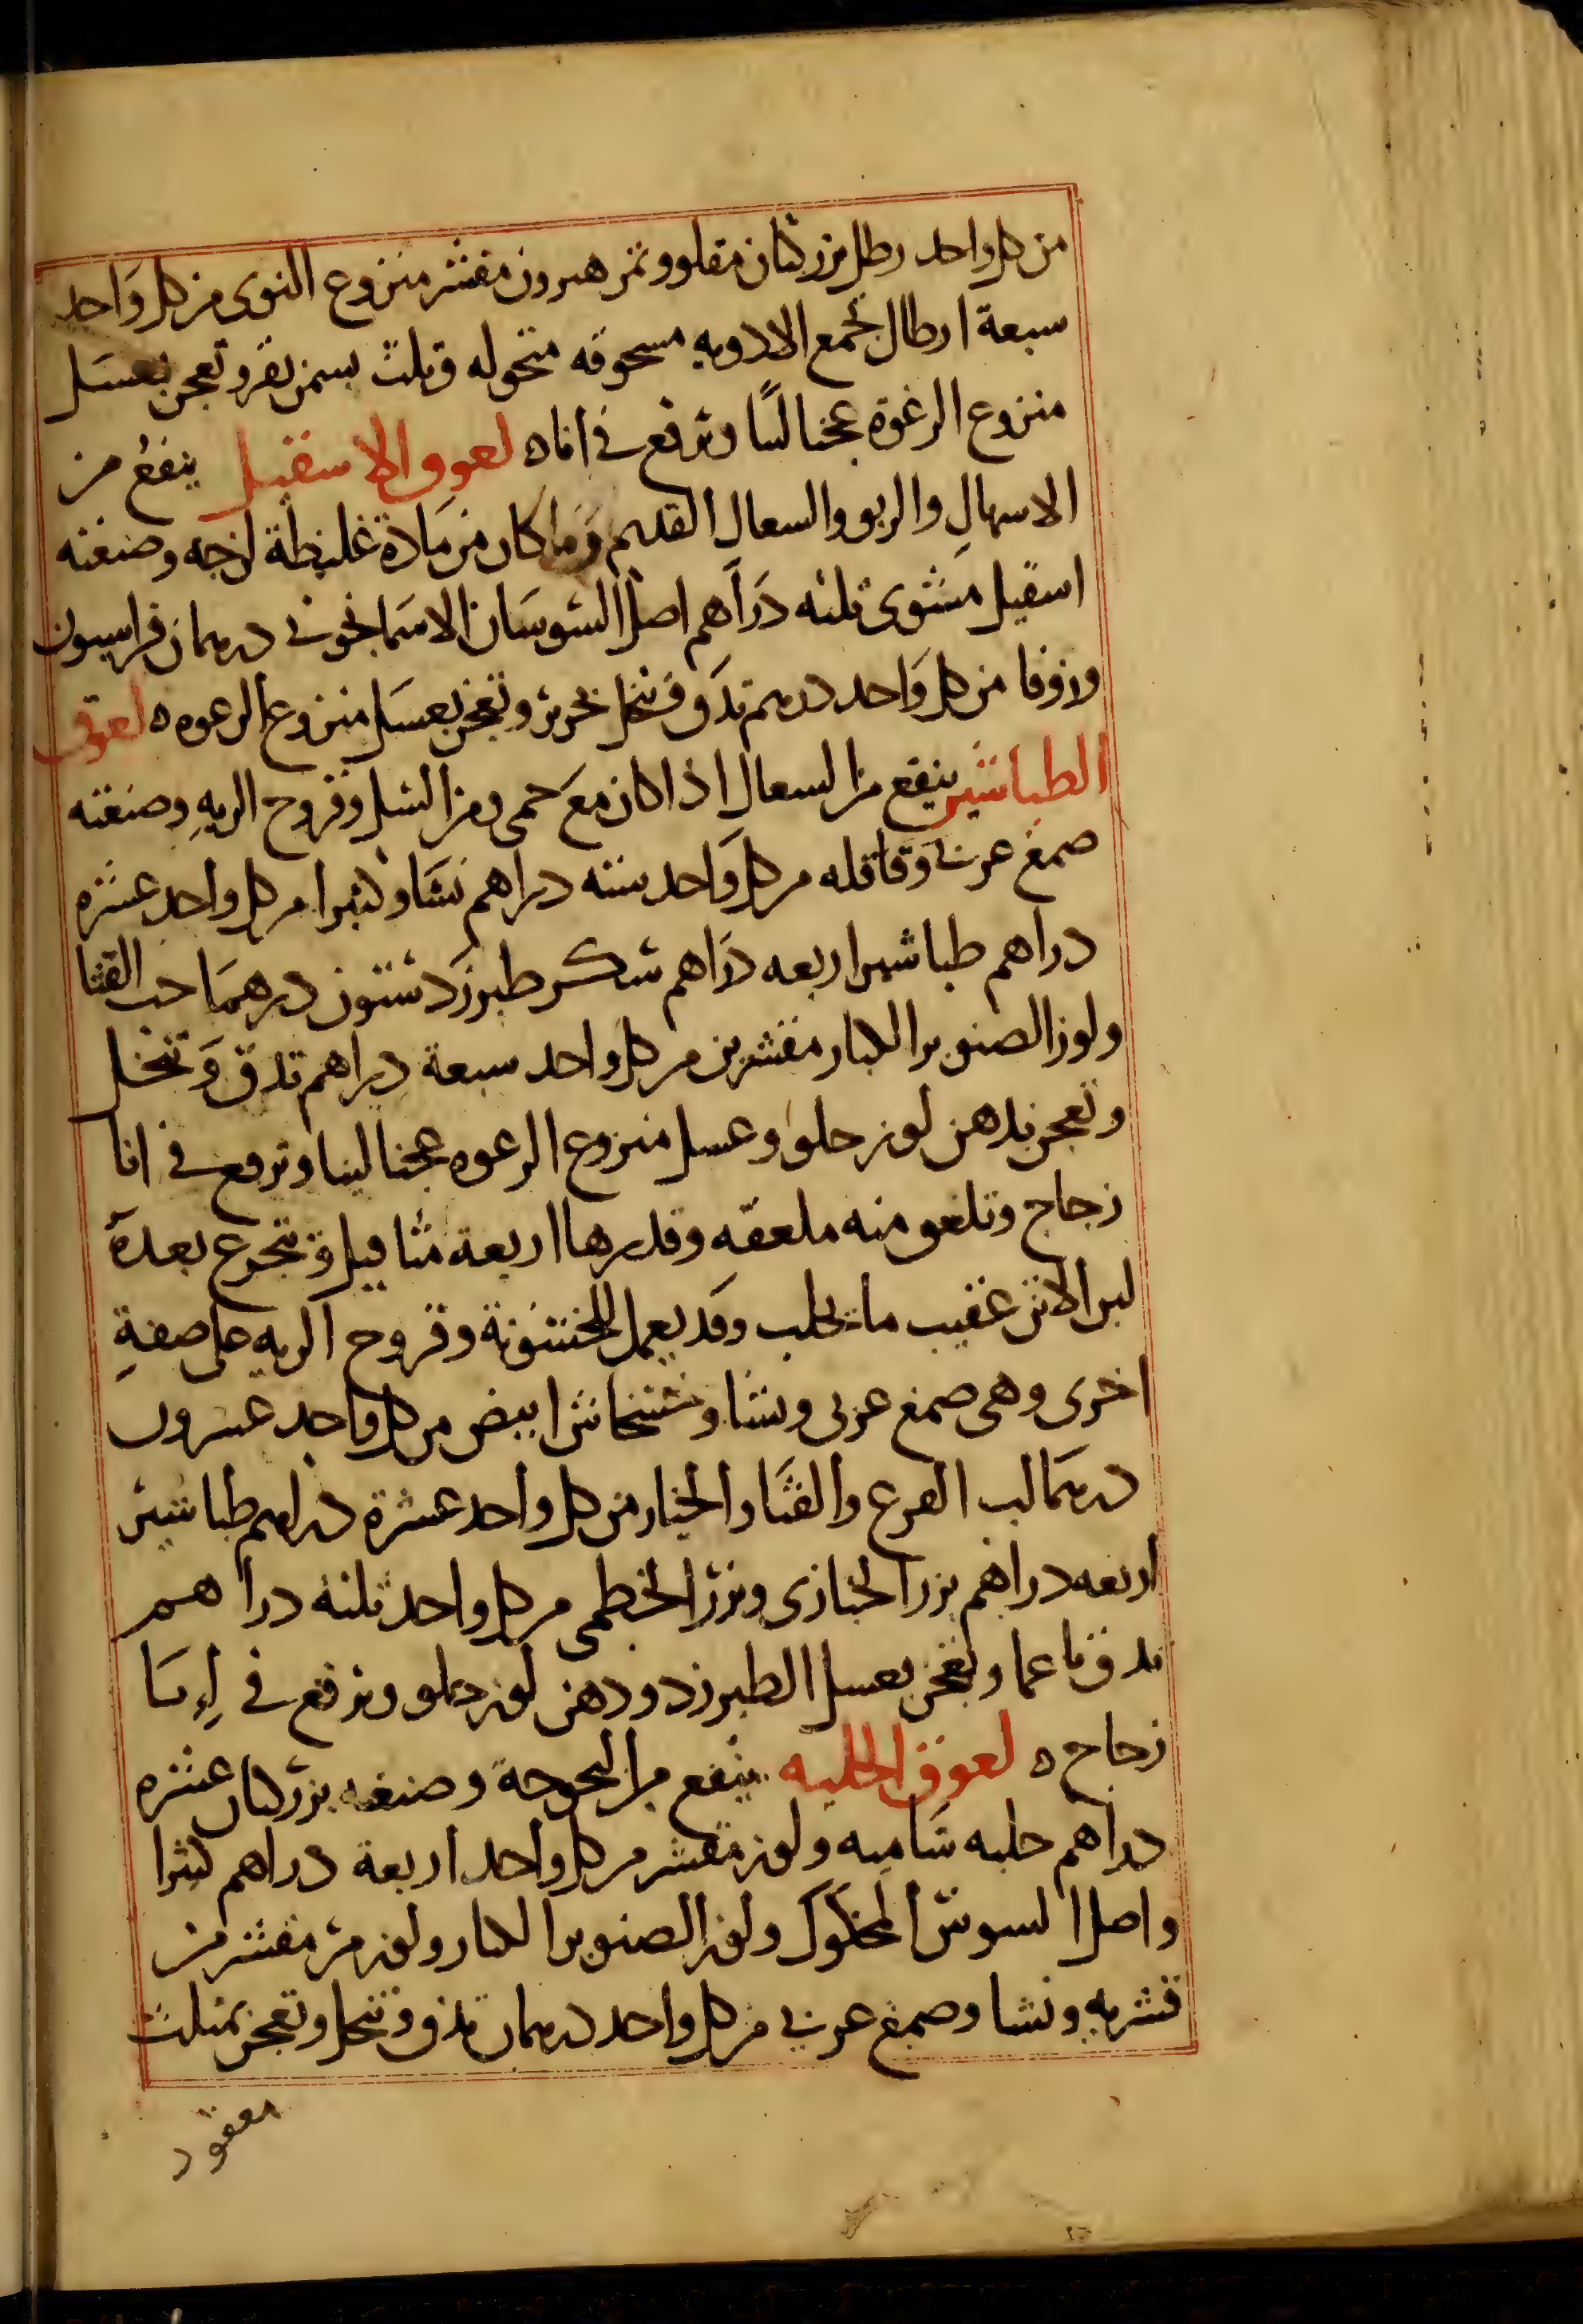 من كل واحد رطل بزر كتان مقلو وتمر هيرون مقشر منزوع النوى من كل وَاحد
سبعة ارطال تجمع الادويه مسحوقه منخوله وتلت بسمن بقر وتعجن بعسَل
منزوع الرغوة عجنا لينًا وترفع في اناه لعوق الاسقيل ينفعُ من
الاسهالِ والربو والسعال القديم وَما كان من مَادة غليظة لزجه وصنعته
اسقيل مشوى ثلثه دَرَاهم اصل السوسَان الاسمَانجوني درهمان فراسيون
وزوفا من كل وَاحد درهم تدَق وتنخل بحرير وتعجن بعسَل منزوع الرعوه ه لعوق
الطباشير ينفع من السعال اذا كان معَ حمى ومن السل وقروح الريهِ وصنعته
صمغ عربي وقاقله من كل وَاحد سته دراهم نشَا وكثيرا من كل واحد عشره
دراهم طباشير اربعه دَرَاهم سكر طبرزَد ستون درهمَا حب القثا
ولوز الصنوبر الكبار مقشرين من كل واحد سبعة دِراهم تدق وَتنخل
وتعجن بدهن لوز حلو وعسل منزوع الرعوه عجنا لينا وترفع في انا
زجاج وتلعق منه ملعقه وقدرها اربعة مثاقيل وَتتجرع بعدهَ
لبن الاتن عقيب ما يحلب وقَد يعمل للخشونة وقروح الريه على صفةِ
اخرى وهى صمغ عربى ونشا وخشخاش ابيض من كل وَاحد عشرون
درهمَا لب القرع والقثَا والخيار من كل واحد عشرة دراهم طباشير
اربعه دراهم بزر الخبازى وبزر الخطمى من كل واحد ثلثه دراهم
تدق ناعما وتعجن بعسل الطبرزد ودهن لوز حلو وترفع في اِنا
زجاج ه لعوق الحلبه ينفع من البحوحة وصنعته بزر كتان عشره
دراهم حلبه شَاميه ولوز مقشر من كل واحد اربعة دراهم كثرا
واصل السوس المحكوك ولوز الصنوبر الكبار ولوز مر مقشر من
قشريه ونشا وصمغ عربي من كل واحد درهمان تدق وتنخل وتعجن بمثلث
معقود